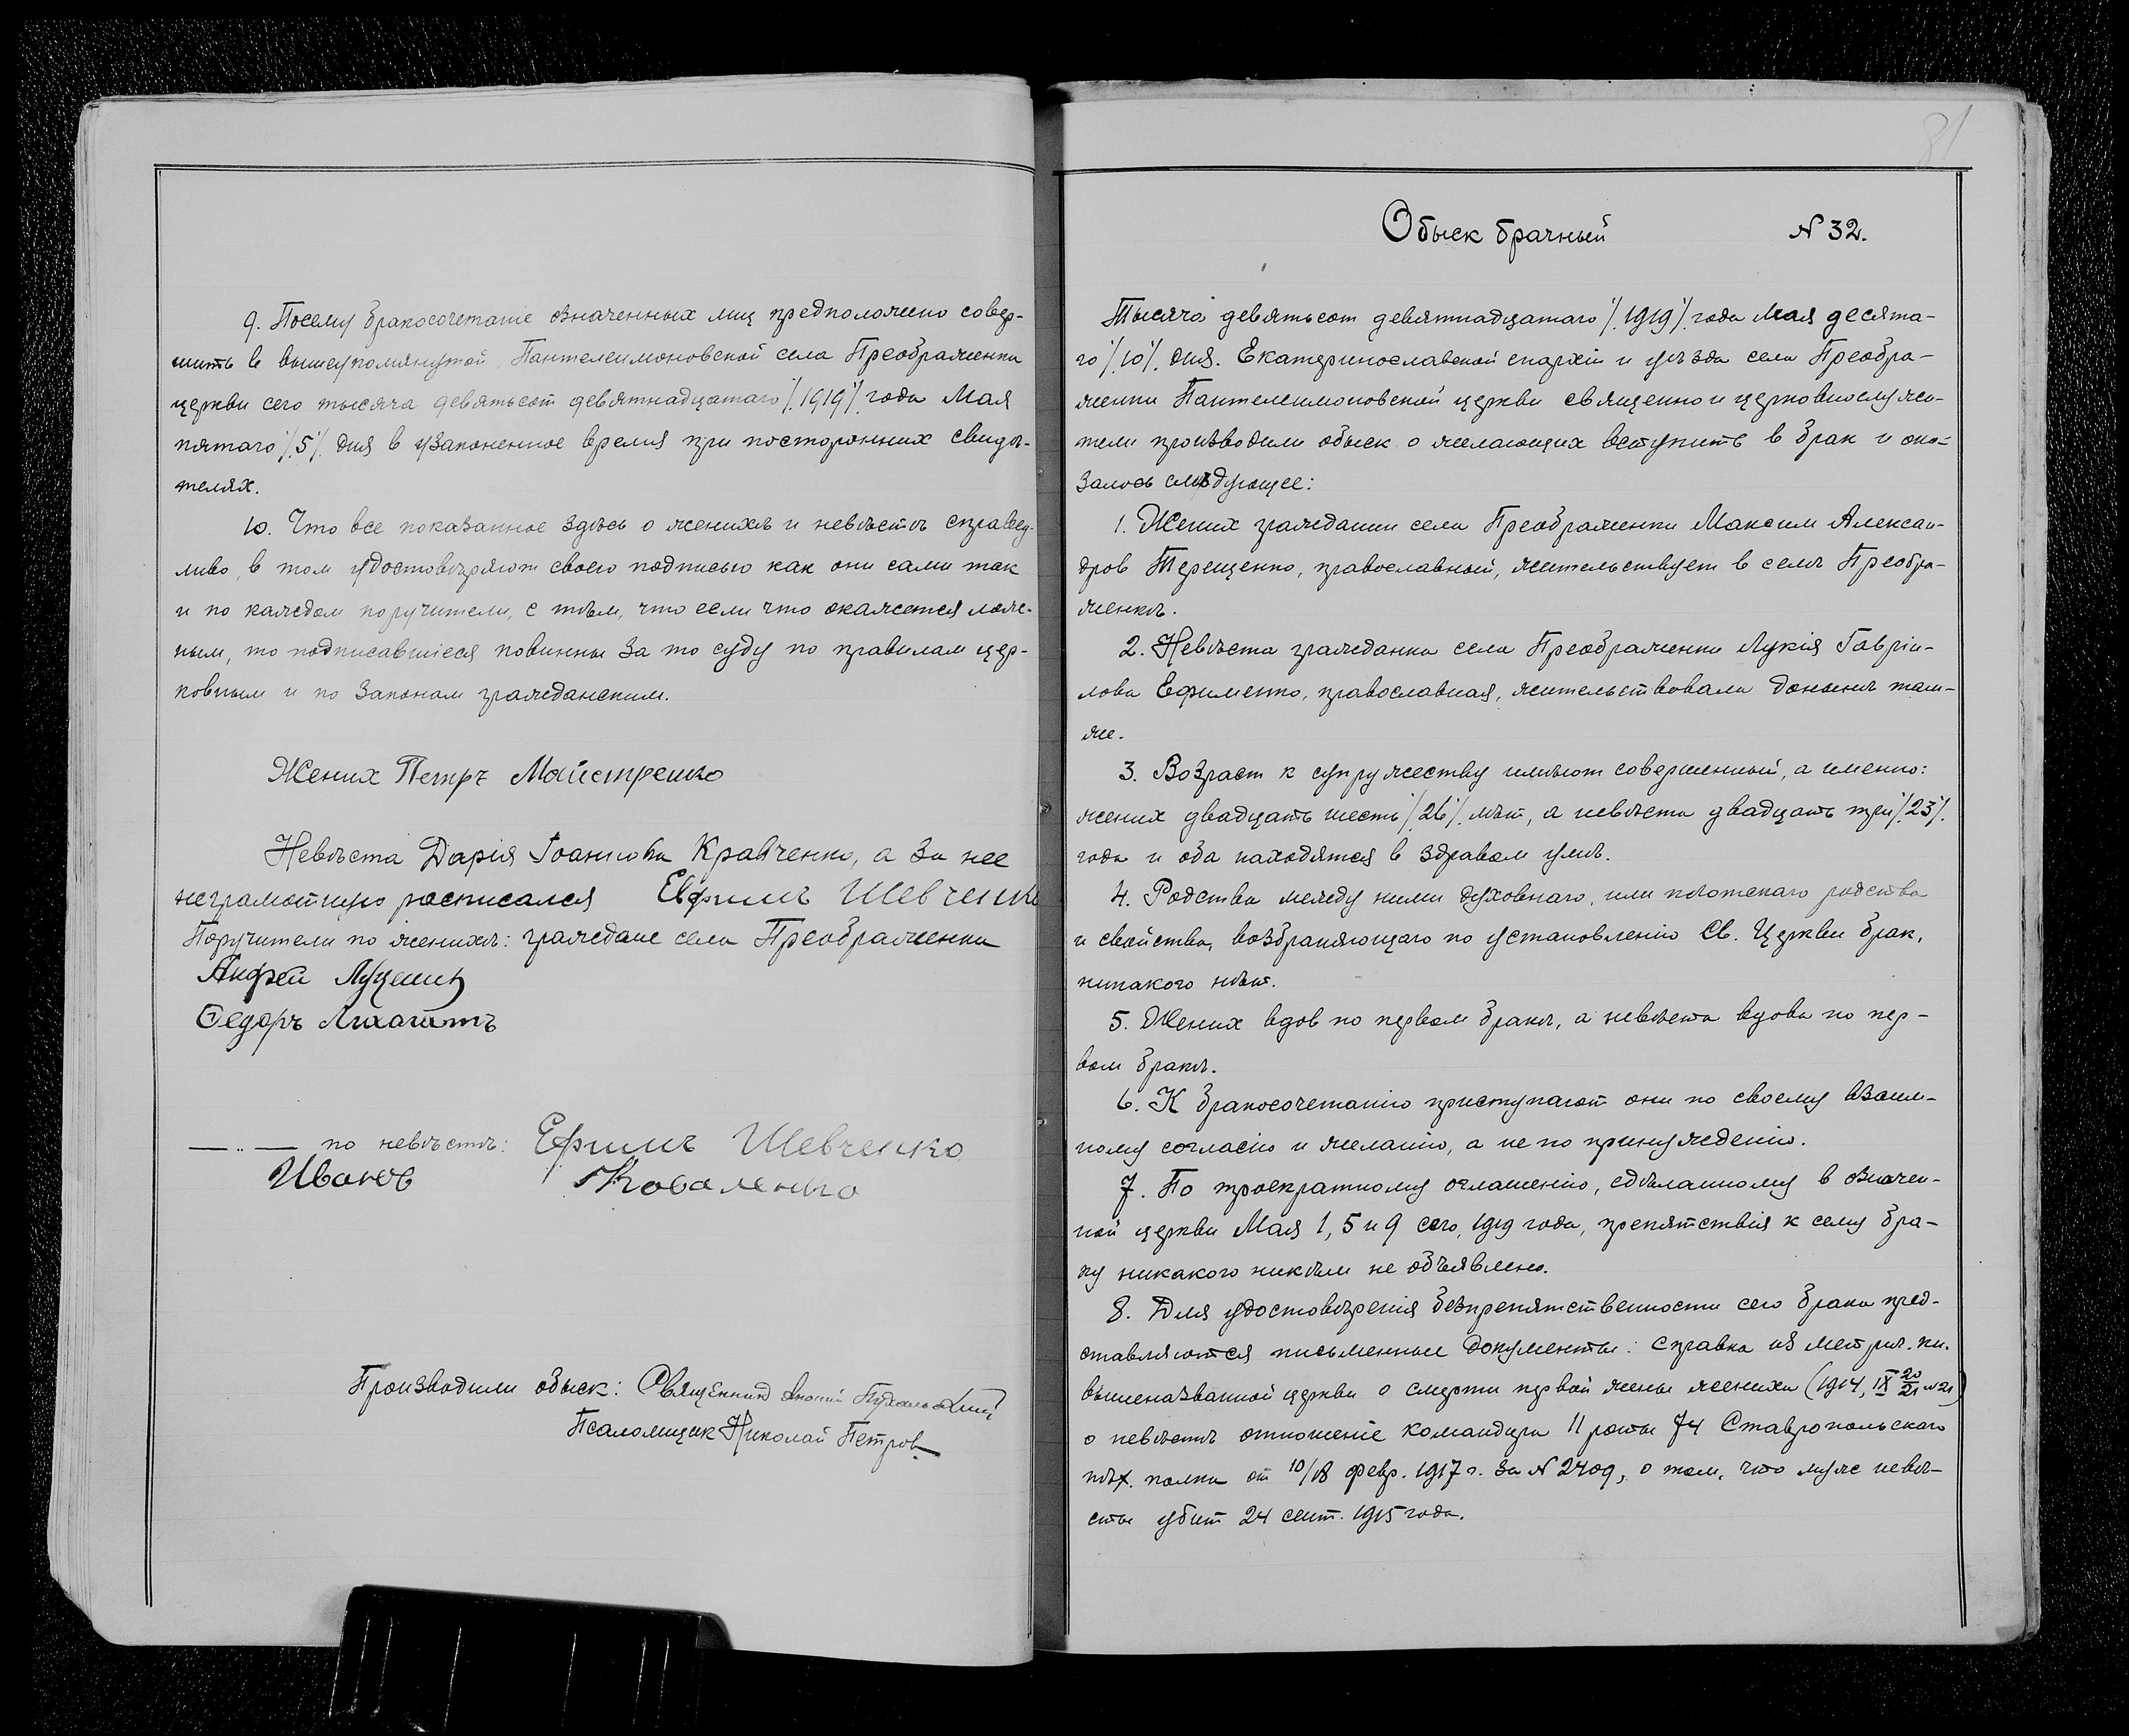 9. Посему бракосочетаніе означенных лиц предположено совер-
шить в вышеупомянутой Пантелеимоновской села Преображенки
церкви сего тысяча девятьсот девятнадцатаго /.1919/. года Мая
пятаго /.5/. дня в узаконенное время при посторонних свидѣ-
телях.
10. Что все показанное здѣсь о женихѣ и невѣстѣ справед-
ливо, в том удостовѣряют своею подписью как они сами так
и по каждом поручители, с тѣм, что если что окажется лож-
ным, то подписавшіеся повинны за то суду по правилам цер-
ковным и по законам гражданским.
Жених Петръ Майстренко
Невѣста Дарія Іоаннова Кравченко, а за нее
неграмотную росписался Ефимъ Шевченко
Поручители по женихѣ: граждане села Преображенки
Андрей
Федоръ
— „ — по невѣстѣ: Ефимъ Шевченко
Иванъ Коваленко
Производили обыск: Священник
Псаломщик Николай Петров
81
Обыск брачный N 32.
Тысяча девятьсот девятнадцатаго /.1919/. года Мая десята-
го /.10/. дня. Екатеринославской епархіи и уѣзда села Преобра-
женки Пантелеимоновской церкви священно и церковнослужи-
тели производили обыск о желающих вступить в брак и ока-
залось слѣдующее:
1. Жених гражданин села Преображенки Максим Алексан-
дров Терещенко, православный, жительствует в селѣ Преобра-
женкѣ.
2. Невѣста гражданка села Преображенки Лукія Гавріи-
лова Ефименко, православная, жительствовала донынѣ там-
же.
3. Возраст к супружеству имѣют совершенный, а именно:
жених двадцать шесть /.26/. лѣт, а невѣста двадцать три /.23/.
года и оба находятся в здравом умѣ.
4. Родства между ними духовнаго, или плотскаго родства
и свойства, возбраняющаго по установленію Св. Церкви брак,
никакого нѣт.
5. Жених вдов по первом бракѣ, а невѣста вдова по пер-
вом бракѣ.
6. К бракосочетанію приступают они по своему взаим-
ному согласію и желанію, а не по принужденію.
7. По троекратному оглашенію, сдѣланному в означен-
ной церкви Мая 1, 5 и 9 сего, 1919 года, препятствія к сему бра-
ку никакого никѣм не объявлено.
8. Для удостовѣренія безпрепятственности сего брака пред-
ставляются письменные документы: справка из метрич. кн.
вышеназванной церкви о смерти первой жены жениха (1914, IX 20/21 N 21)
о невѣстѣ отношеніе командира 11 роты 74 Ставропольскаго
пѣх. полка от 10/18 февр. 1917 г. за N 2409, о том, что муж невѣ-
сты убит 24 сент. 1915 года.